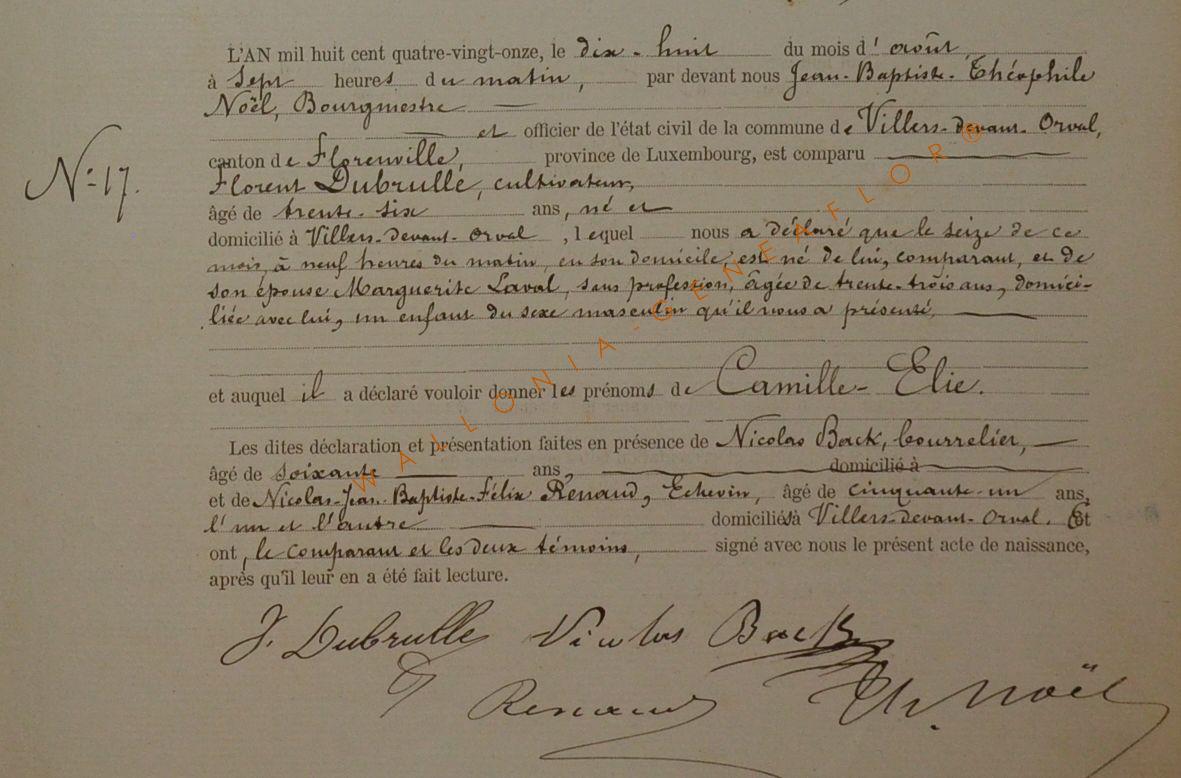 L'AN mil huit cent quatre-vingt-onze, le dix-huit du mois d'août,
à sept heures du matin, par devant nous Jean-Baptiste-Théophile
Noël, Bourgmestre
et officier de l'état civil de la commune de Villers-devant-Orval,
canton de Florenville, province de Luxembourg, est comparu
N° 17.
Florent Dubrulle, cultivateur,
âgé de trente-six ans, né et
domicilié à Villers-devant-Orval, lequel nous a déclaré que le seize de ce
mois, à neuf heures du matin, en son domicile, est né de lui, comparant, et de
son épouse Marguerite Laval, sans profession, âgée de trente-trois ans, domici-
liée avec lui, un enfant du sexe masculin qu'il nous a présenté,
et auquel il a déclaré vouloir donner les prénoms de Camille-Elie.
Les dites déclaration et présentation faites en présence de Nicolas Back, bourrelier,
âgé de soixante ans, domicilié à
et de Nicolas-Jean-Baptiste-Félix Renaud, Echevin, âgé de cinquante-un ans,
l'un et l'autre domiciliés à Villers-devant-Orval. Et
ont, le comparant et les deux témoins, signé avec nous le présent acte de naissance,
après qu'il leur en a été fait lecture.
F. Dubrulle Nicolas Back
Renaud Th. Noël
WALLONIA-GENEAFLOR®